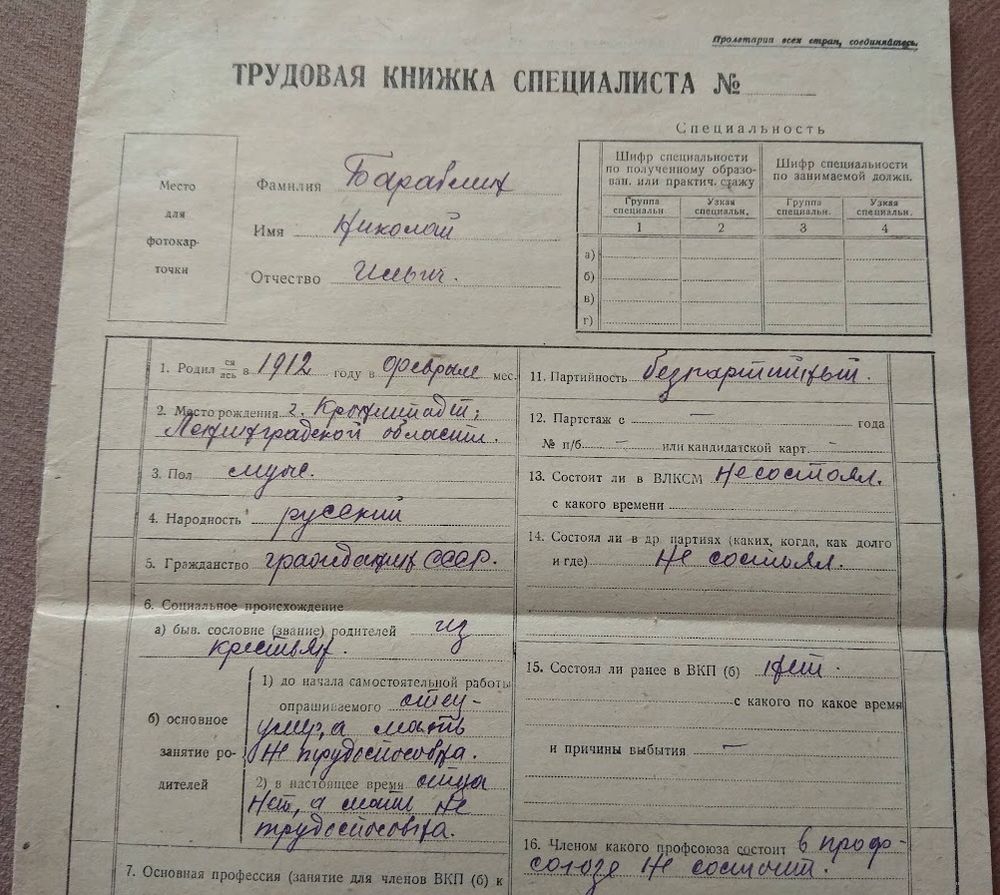 Пролетарии всех стран, соединяйтесь.
ТРУДОВАЯ КНИЖКА СПЕЦИАЛИСТА №
Место
для
фотокар-
точки
Фамилия
Имя Николай
Отчество Ильич.
Специальность
Шифр специальности
по полученному образо-
ван. или практич. стажу
Шифр специальности
по занимаемой должн.
Группа
специальн.
Узкая
специальн.
Группа
специальн.
Узкая
специальн.
1 2 3 4
а)
б)
в)
г)
1. Родил ся лась в 1912 году в феврале мес.
2. Место рождения г. Кронштадт;
Ленинградской области.
3. Пол муж.
4. Народность русский
5. Гражданство гражданин СССР.
6. Социальное происхождение
а) быв. сословие (звание) родителей из
крестьян.
б) основное
занятие ро-
дителей
1) до начала самостоятельной работы
опрашиваемого отец-
умер, а мать
не трудоспособна.
2) в настоящее время отца
нет, а мать не
трудоспособна.
7. Основная профессия (занятие для членов ВКП (б) к
11. Партийность безпартийный.
12. Партстаж с — года
№ п/б — или кандидатской карт. —
13. Состоит ли в ВЛКСМ не состоял.
с какого времени
14. Состоял ли в др. партиях (каких, когда, как долго
и где) не состоял.
15. Состоял ли ранее в ВКП (б) нет.
с какого по какое время
и причины выбытия —
16. Членом какого профсоюза состоит в проф-
союзе не состоит.